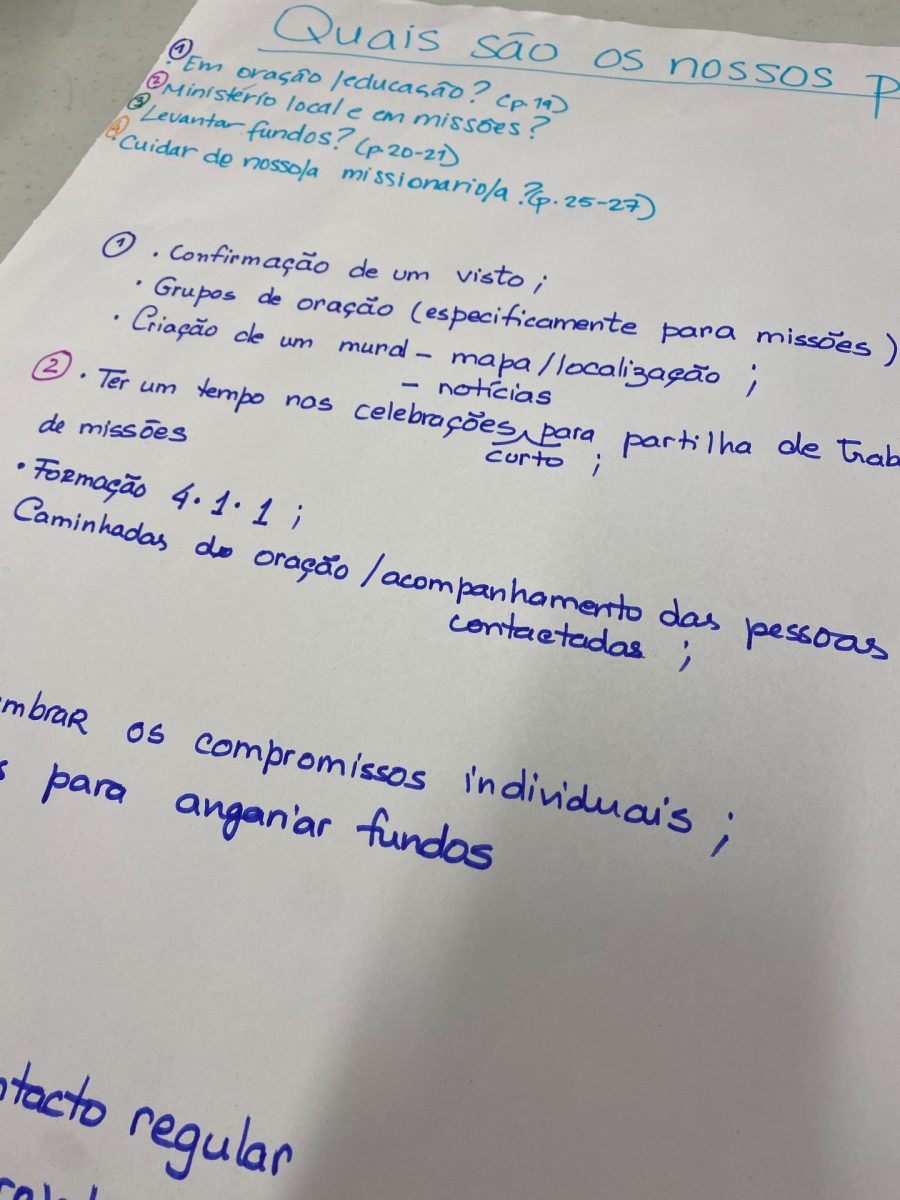 Quais são os nossos
① · Em oração/educação? (p.19)
② · Ministério local e em missões?
③ · Levantar fundos? (p.20-21)
④ · Cuidar de nosso/a missionario/a? (p.25-27)
① · Confirmação de um visto;
· Grupos de oração (especificamente para missões)
· Criação de um mural - mapa/localização;
- notícias
② · Ter um tempo nas celebrações, para partilha de
curto ;
de missões
· Formação 4.1.1;
Caminhadas de oração/acompanhamento das pessoas
contactadas ;
os compromissos individuais;
para angariar fundos
regular